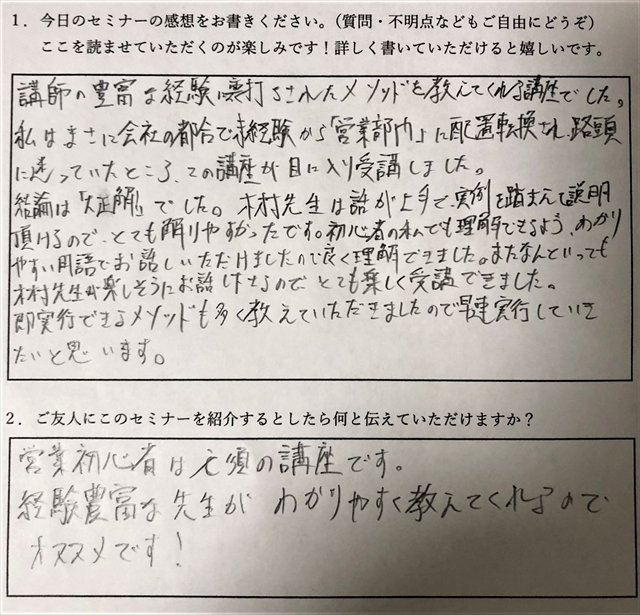 1．今日のセミナーの感想をお書きください。（質問・不明点などもご自由にどうぞ）
ここを読ませていただくのが楽しみです！詳しく書いていただけると嬉しいです。
講師の豊富な経験に裏打ちされたメソッドを教えてくれる講座でした。
私はまさに会社の都合で未経験から「営業部門」に配置転換され、路頭
に迷っていたところ、この講座が目に入り受講しました。
結論は「大正解」でした。木村先生は話が上手で、実例を踏まえて説明
頂けるので、とても解りやすかったです。初心者の私でも理解できるよう、わかり
やすい用語でお話しいただけましたので良く理解できました。またなんといっても
木村先生が楽しそうにお話しけするので とても楽しく受講できました。
即実行できるメソッドも多く教えていただきましたので早速実行していき
たいと思います。
2．ご友人にこのセミナーを紹介するとしたら何と伝えていただけますか？
営業初心者は必須の講座です。
経験豊富な先生が わかりやすく教えてくれるので
オススメです！